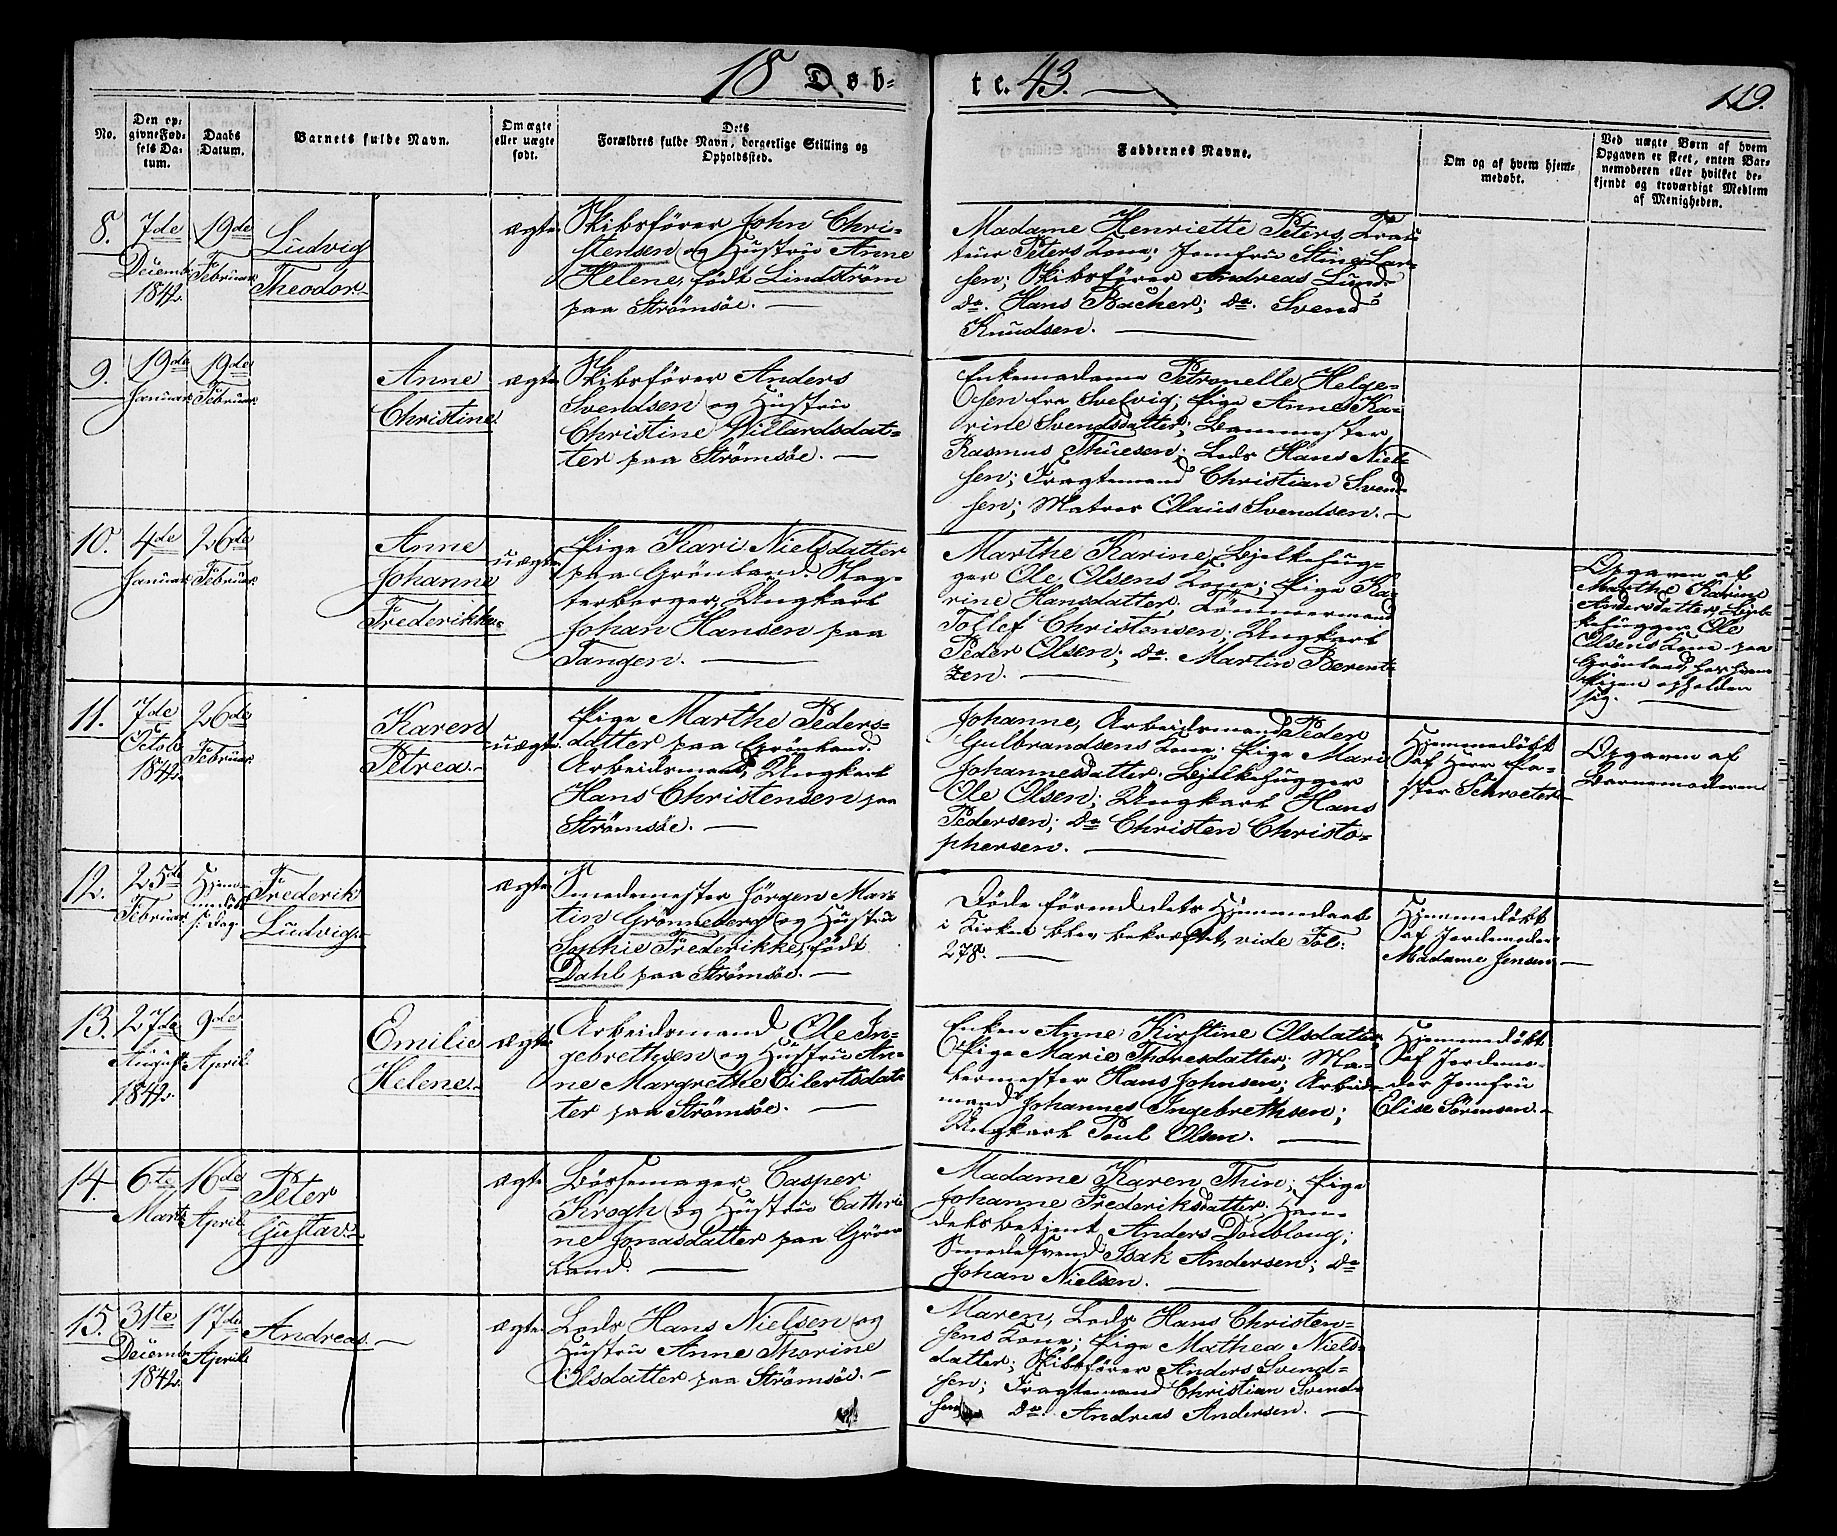 18 Døb-
te. 43.
119.
No.
Den op-
givne Fød-
sels Da-
tum.
Daabs
Datum.
Barnets fulde Navn.
Om ægte
eller uægte
født.
Dets
Forældres fulde Navn, borgerlige Stilling og
Opholdssted.
Faddernes Navne.
Om og af hvem hjem-
medøbt.
Ved uægte Børn af hvem
Opgaven er skeet, enten Bar-
nemoderen eller hvilket be-
kjendt og troværdigt Medlem
af Menigheden.
8.
7de
Decembr
1842.
19de
Februar.
Ludvig
Theodor.
ægte
Skibsfører John Chri-
stensen og Hustru Anne
Helene, født Lindstrøm
paa Strømsøe.
Madame Henriette Peters,
Peters Kone; Jomfru Stine Lar-
sen; Skibsfører Andreas Lund;
do. Hans Bacher; do. Svend
Knudsen.
9.
19de
Januar.
19de
Februar.
Anne
Christine.
ægte
Skibsfører Anders
Svendsen og Hustru
Christine Willardsdat-
ter paa Strømsøe.
Enkemadame Petronelle Helge-
sen fra Svelvig; Pige Anne Ka-
rine Svendsdatter;
Rasmus Thuesen; Lods Hans Niel-
sen; Fragtemand Christian Svend-
sen; Matros Olaus Svendsen.
10.
4de
Januar.
26de
Februar.
Anne
Johanne
Frederikke.
uægte
Pige Kari Nielsdatter
paa Grønland.
Ungkarl
Johan Hansen paa
Tangen.
Marthe Karine, Bjelkehug-
ger Ole Olsens Kone; Pige Ka-
rine Hansdatter; Tømmermand
Tollef Christensen; Ungkarl
Peder Olsen; do. Martin Berent-
zen.
Opgaven af
Marthe Karine
Andersdatter, Bjel-
kehugger Ole
Olsens Kone paa
Grønland, hos hvem
Pigen opholder
sig.
11.
7de
Octob.
1842.
26de
Februar.
Karen
Petrea.
uægte
Pige Marthe Peders-
datter paa Grønland.
Arbeidsmand, Ungkarl
Hans Christensen paa
Strømsøe.
Johanne, Arbeidsmand Peder
Gulbrandsens Kone; Pige Mari
Johannesdatter; Bjelkehugger
Ole Olsen; Ungkarl Hans
Pedersen; do Christen Christo-
phersen.
Hjemmedøbt
af Herr Pa-
stor Schroeter.
Opgaven af
Barnemoderen
12.
25de
Februar.
Hjem-
medøbt
s. Dag.
Frederik
Ludvig.
ægte
Smedemester Jørgen Mar-
tin Grønneberg og Hustru
Sophie Frederikke, født
Dahl paa Strømsøe.
Døde førend dets Hjemmedaab
i Kirken blev bekræftet, vide Fol:
278.
Hjemmedøbt
af Jordemoder
Madame Jensen
13.
27de
August
1842.
9de
April.
Emilie
Helene.
ægte
Arbeidsmand Ole In-
gebrethsen og Hustru An-
ne Margrethe Eilertsdat-
ter paa Strømsøe.
Enken Anne Kirstine Olsdatter;
Pige Marie Thoresdatter; Ma-
lermester Hans Johnsen; Arbeids-
mand Johannes Ingebrethsen;
Ungkarl Poul Olsen.
Hjemmedøbt
af Jordemo-
der Jomfru
Elise Sørensen.
14.
6te
Marts
16de
April.
Peter
Gustav.
ægte
Bøssemager Casper
Krogh og Hustru Cathri-
ne Jonasdatter paa Grøn-
land.
Madame Karen Thin; Pige
Johanne Frederiksdatter; Han-
delsbetjent Anders Doublong;
Smedesvend Isak Andersen; do
Johan Nielsen.
15.
31te
Decembr
1842.
17de
April.
Andreas.
ægte
Lods Hans Nielsen og
Hustru Anne Thorine
Olsdatter paa Strømsøe.
Maren, Lods Hans Christen-
sens Kone; Pige Mathea Niels-
datter; Skibsfører Anders Svend-
sen; Fragtemand Christian Svend-
sen do. Andreas Andersen.